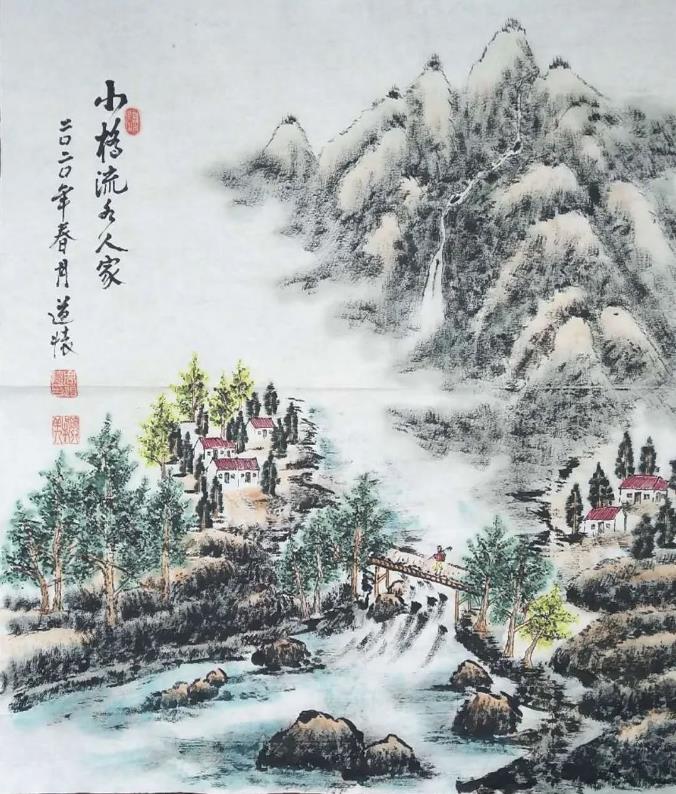 小桥流水人家
二〇二〇年春月道怀